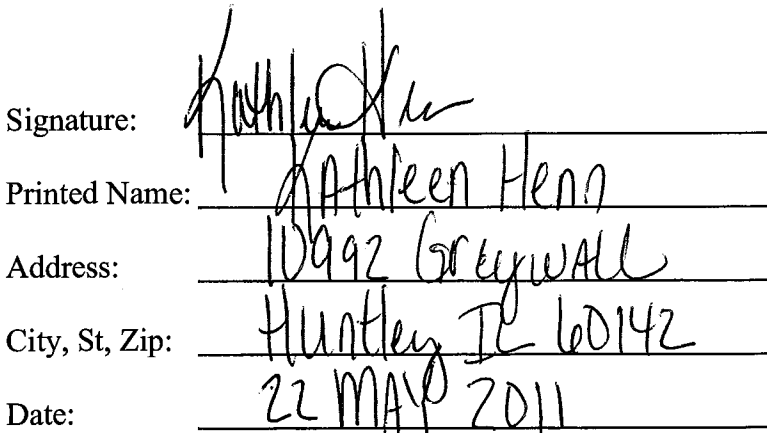 Signature: Kathleen Henn
Printed Name: Kathleen Henn
Address: 10992 Greywall
City, St, Zip: Huntley IL 60142
Date: 22 MAY 2011